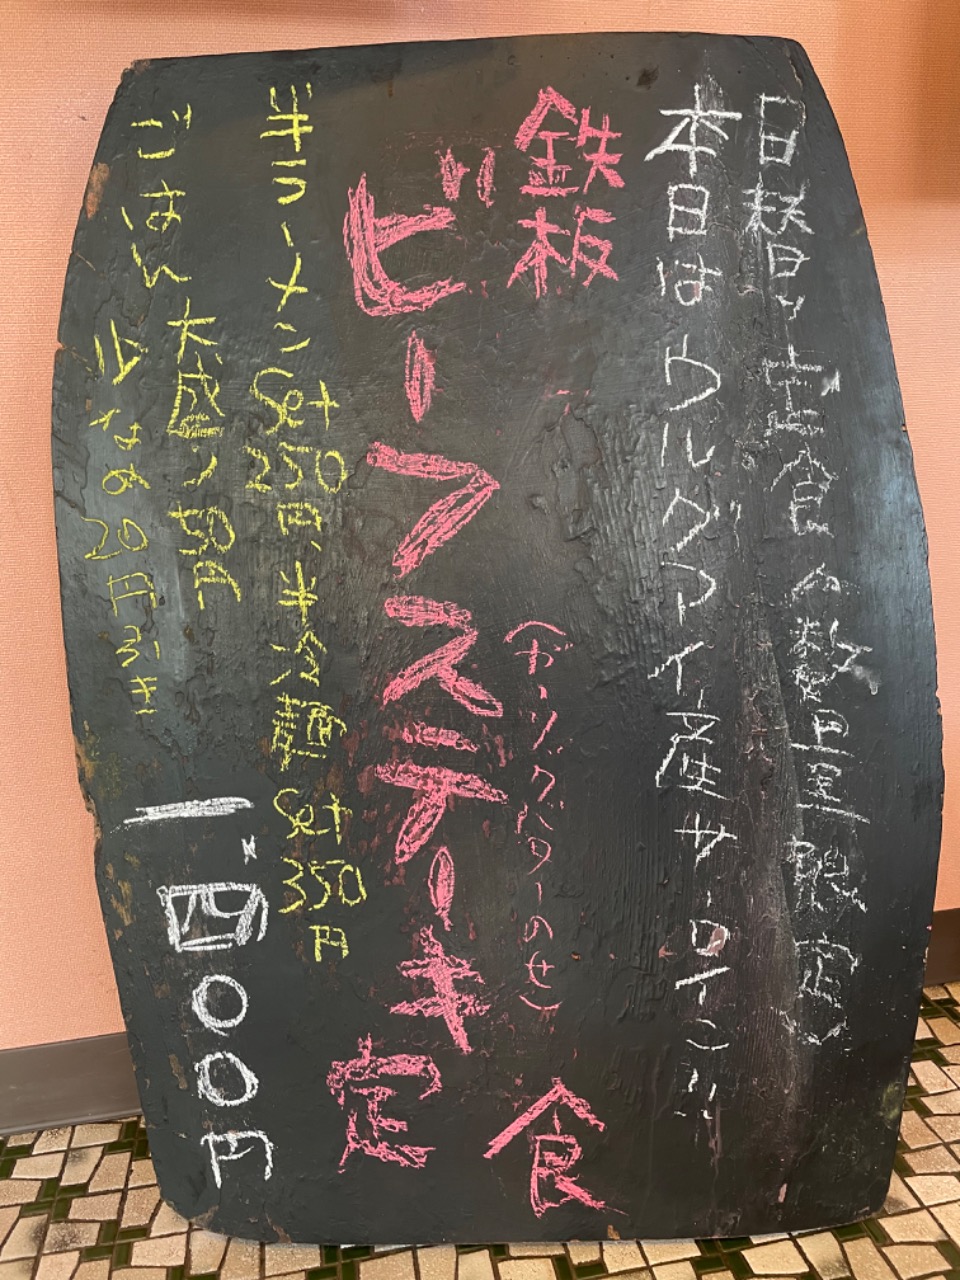 日替り定食〈数量限定〉
本日はウルグアイ産サーロイン!!
鉄板
ビーフステーキ定食
(ガーリックバターのせ)
半ラーメンSet250円、半冷麺Set350円
ごはん大盛り50円
少なめ20円引き
一四〇〇円